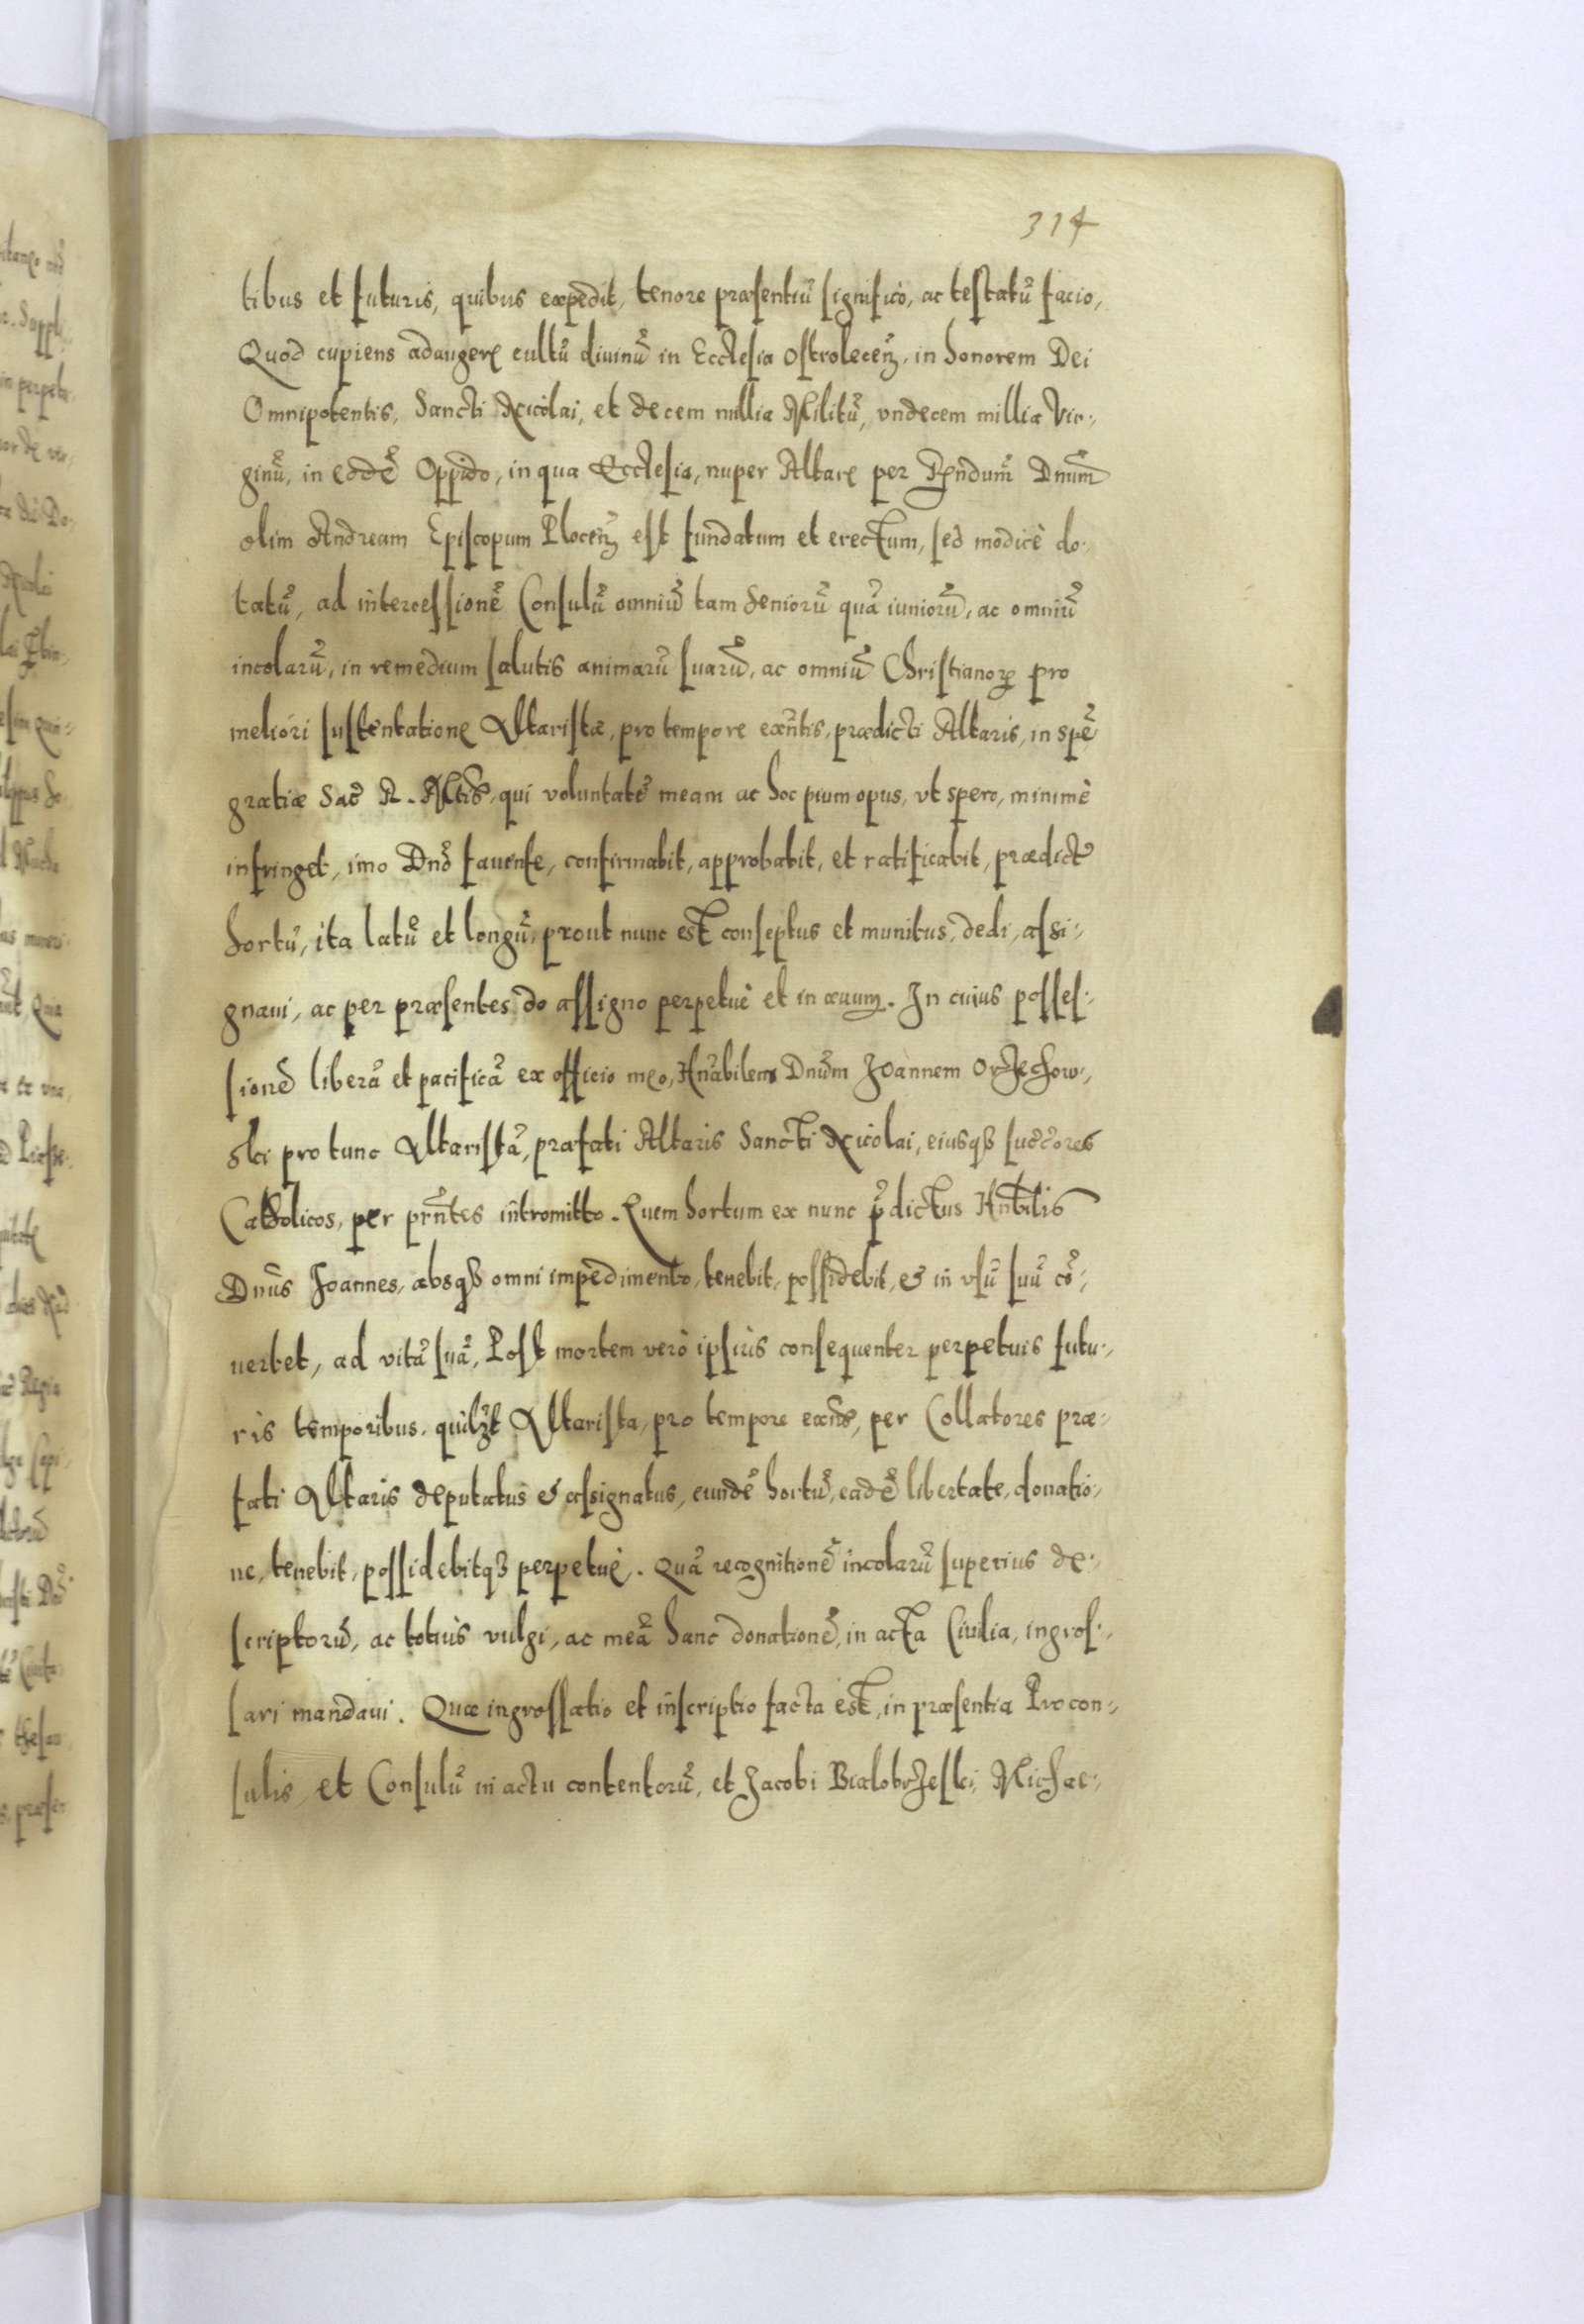 314
tibus et futuris, quibus expedit, tenore præsentiũ significo, ac testatũ facio,
Quod cupiens adaugerę cultũ diuinũ in Ecclesia Ostrolecen̄, in honorem Dei
Omnipotentis, Sancti Nicolai, et decem millia Militũ, vndecem millia Vir-,
ginũ, in eodẽ Oppido, in qua Ecclesia, nuper Altarę per Rn̄dum̃ Dnum̃
olim Andream Episcopum Plocen̄ est fundatum et erectum, sed modicè do-
tatũ, ad intercessionẽ Consulũ omniũ tam Seniorũ quã iuniorũ, ac omniũ
incolarũ, in remedium salutis animarũ suarũ, ac omniũ Christianoꝝ pro
meliori sustentationę Altaristæ, pro tempore exñtis, prædicti Altaris, in spẽ
gratiæ Sac̃ R. Mtis̃, qui voluntatẽ meam ac hoc pium opus, vt spero, minimè
infringet, imo Dnõ fauente, confirmabit, approbabit, et ratificabit, prædict̃
hortũ, ita latũ et longũ, prout nunc est conseptus et munitus, dedi, assi-,
gnaui, ac per præsentes do assigno perpetuè et in æuum. In cuius posses-,
sionẽ liberã et pacificã ex officio meo, Hnãbilem Dnũm Joannem Orzechow-,
ski pro tunc Altaristã, præfati Altaris Sancti Nicolai, eiusqȝ succ̃ores
Catholicos, per prñtes intromitto. Quem hortum ex nunc p̃dictus Hnb̃ilis
Dnũs Joannes, absqȝ omni impedimento, tenebit, possidebit, & in vsũ suũ cõ-,
uertet, ad vitã suã, Post mortem verò ipsius consequenter perpetuis futu-,
ris temporibus, quilȝt Altarista, pro tempore exñs, per Collatores præ-
fati Altaris deputatus & assignatus, eundẽ hortũ, eadẽ libertate, donatio-,
ne, tenebit, possidebitqȝ perpetuè. Quã recognitionẽ incolarũ superius de-,
scriptorũ, ac totius vulgi, ac meã hanc donationẽ, in acta Ciuilia, ingros-,
sari mandaui. Quæ ingrossatio et inscriptio facta est, in præsentia Procon-,
sulis, et Consulũ in actu contentorũ, et Jacobi Bialobrzeski, Michae-,